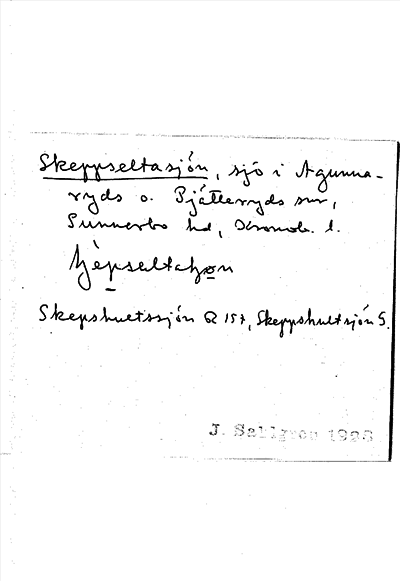 Skeppseltasjön, sjö i Agunna-
ryds o. Pjätteryds snr,
Sunnerbo hd, Kronob. l.
Skepshultssjön R 157, Skeppshultsjön S.
J. Sahlgren 1928